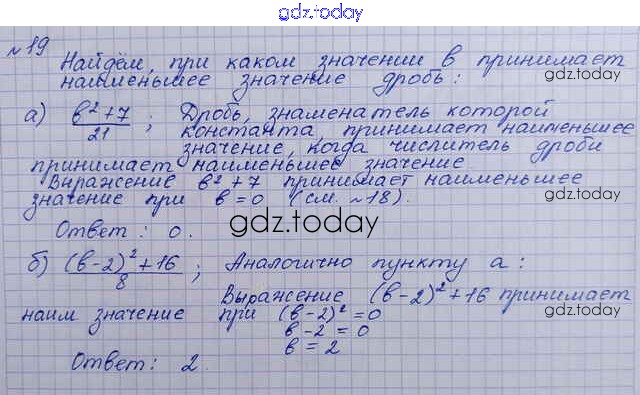 gdz.today
№19
Найдём, при каком значении в принимает
наименьшее значение дробь:
gdz.today
а) (в²+7)/21 ; Дробь, знаменатель которой
константа, принимает наименьшее
значение, когда числитель дроби
принимает наименьшее значение
gdz.today
Выражение в²+7 принимает наименьшее
значение при в=0 (см. №18).
gdz.today
gdz.today
Ответ: 0.
б) ((в-2)²+16)/8 ; Аналогично пункту а:
Выражение (в-2)²+16 принимает
наим значение при (в-2)²=0
gdz.today
в-2=0
в=2
Ответ: 2.
gdz.today